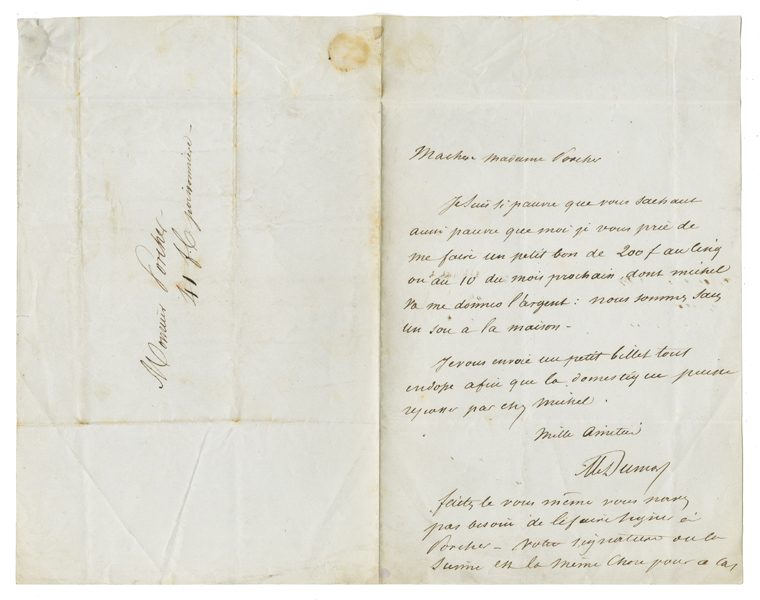 Monsieur Porcher
41 fg poissonnière
Ma chère madame Porcher
Je suis si pauvre que vous sachant
aussi pauvre que moi je vous prie de
me faire un petit bon de 200 f au cinq
ou au 10 du mois prochain, dont michel
va me donner l'argent : nous sommes sans
un sou à la maison -
Je vous envoie un petit billet tout
endossé afin que la domestique puisse
repasser par chez michel.
Mille amitiés
Alex Dumas
faites le vous même vous n'avez
pas besoin de le faire signer à
Porcher - votre signature ou la
sienne est la même chose pour ce cas